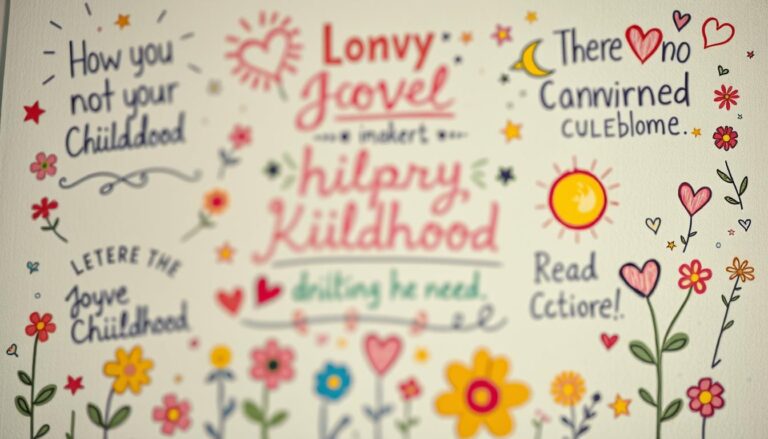 How you
not your
Chiilddood
Lonvy
Jcovel
hilpry
Kiildhood
he need.
There no
CULEblome.
LETERE THE
Joyve
Chiildhood
Read
Cctiore!.